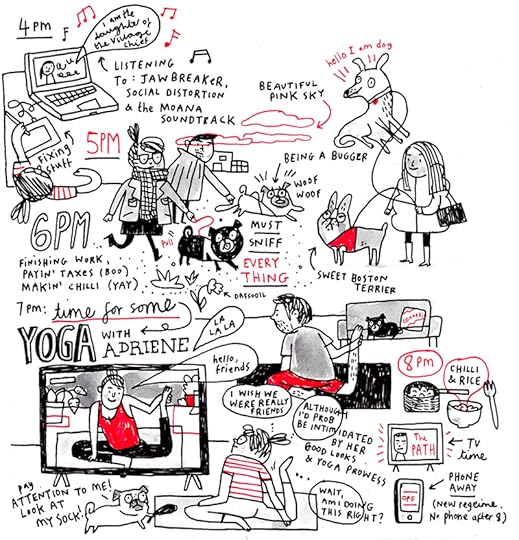 4PM
I am the
daughter of
the village
chief
LISTENING
TO: JAWBREAKER,
SOCIAL DISTORTION
& the MOANA
SOUNDTRACK
hello I am dog
BEAUTIFUL
PINK SKY
Fixing
stuff
5PM
BEING A BUGGER
WOOF
WOOF
Pull
MUST
SNIFF
EVERY
THING
SWEET BOSTON
TERRIER
6PM
FINISHING WORK,
PAYIN' TAXES (BOO)
MAKIN' CHILLI (YAY)
DAFFODIL
7pm: time for some
YOGA WITH
ADRIENE
LA
LA LA
hello,
friends
I WISH WE
WERE REALLY
FRIENDS
ALTHOUGH
I'D PROB
BE INTIMIDATED
BY HER
GOOD LOOKS
& YOGA PROWESS
...
8PM
CHILLI
& RICE
The
PATH
TV
time
PAY
ATTENTION TO ME!
LOOK AT
MY SOCK!
WAIT,
AM I DOING
THIS RIGHT?
OFF
PHONE
AWAY
(New regeime.
No phone after 8)